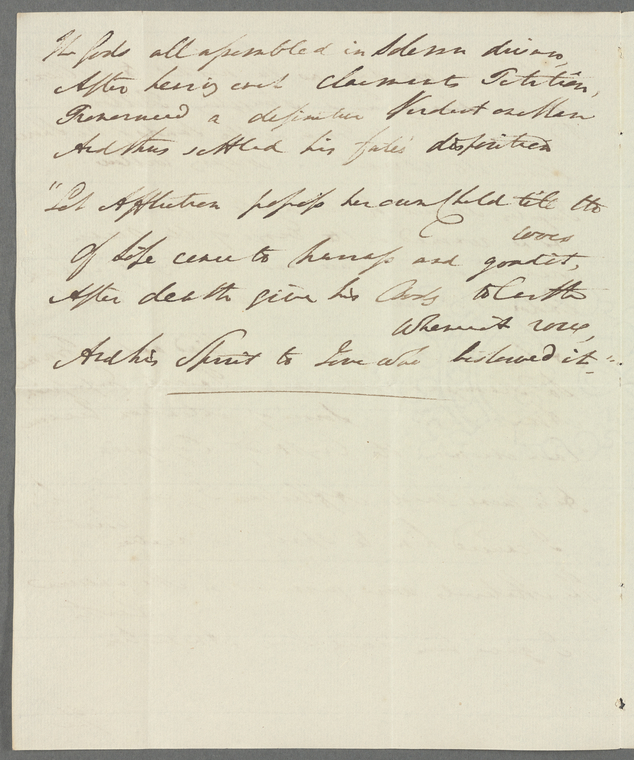 The Gods all assembled in solemn divan,
After hearing each Claiments Petition,
Pronounced a definitive Verdict on Man
And thus settled his fate's disposition
"Let Affliction possess her own Child till the
woes
Of Life cease to harrass and goad it,
After death give his Body to Earth
Whence it rose,
And his Spirit to Jove who bestowed it".